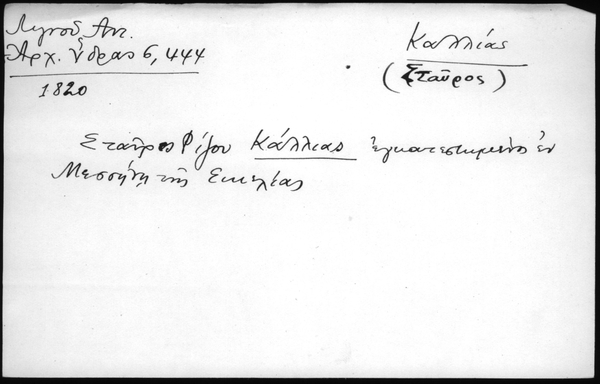 Λιγνοῦ Ἀντ.
Ἀρχ. Ὕδρας 6, 444
1820
Καλλίας
(Σταῦρος)
Σταῦρος Ρίζου Κάλλιας ἐγκατεστημένος ἐν
Μεσσήνῃ τῆς Σικελίας